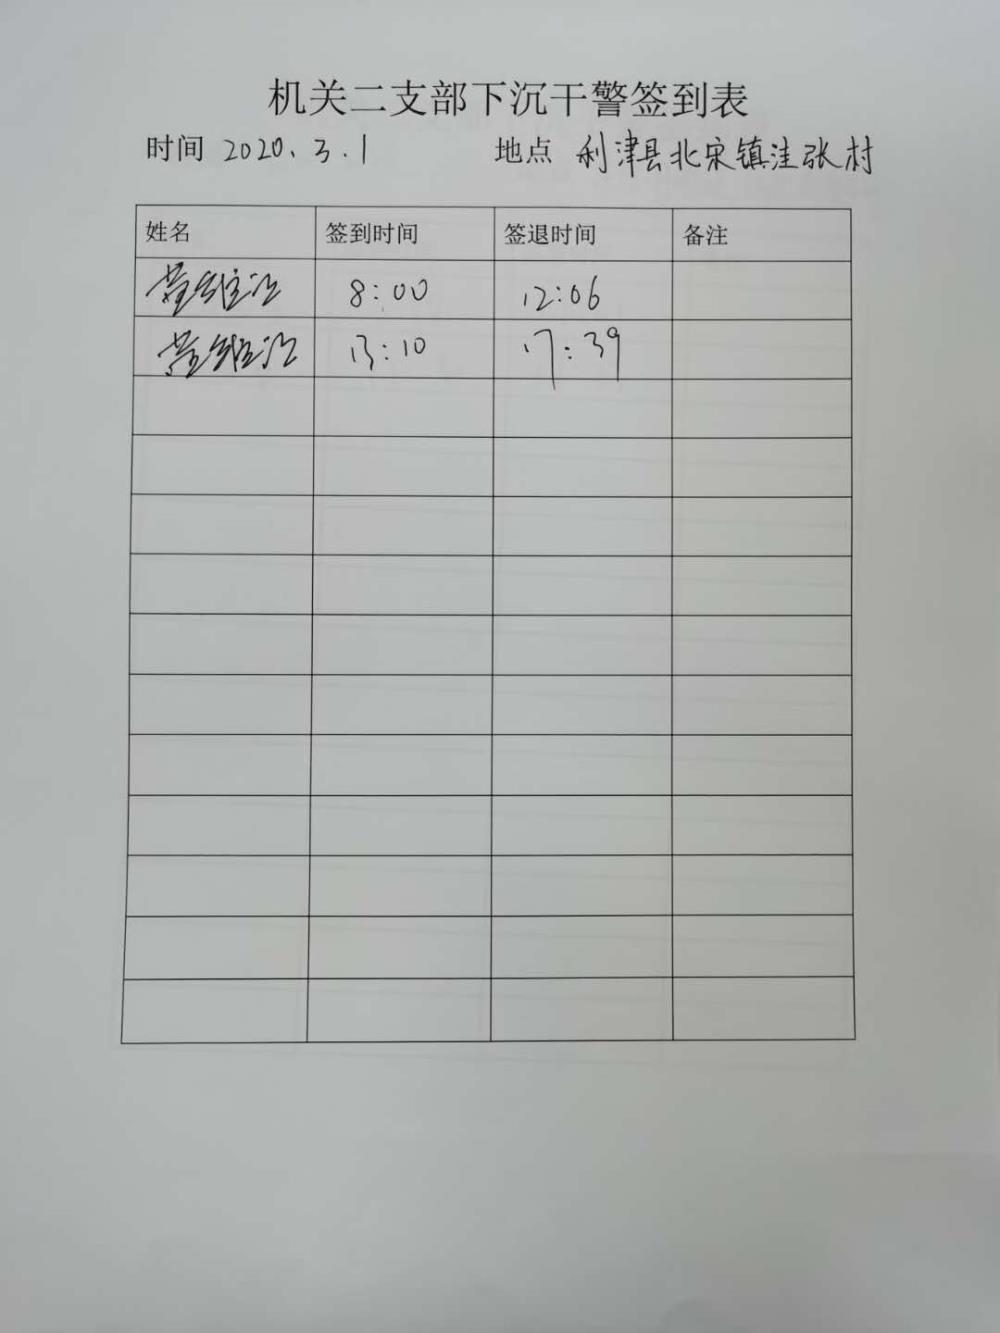 机关二支部下沉干警签到表
时间 2020.3.1 地点 利津县北宋镇洼张村
姓名 签到时间 签退时间 备注
8:00 12:06
13:10 17:39